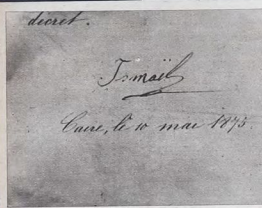 décret.
Ismaël
Caire, le 10 mai 1875